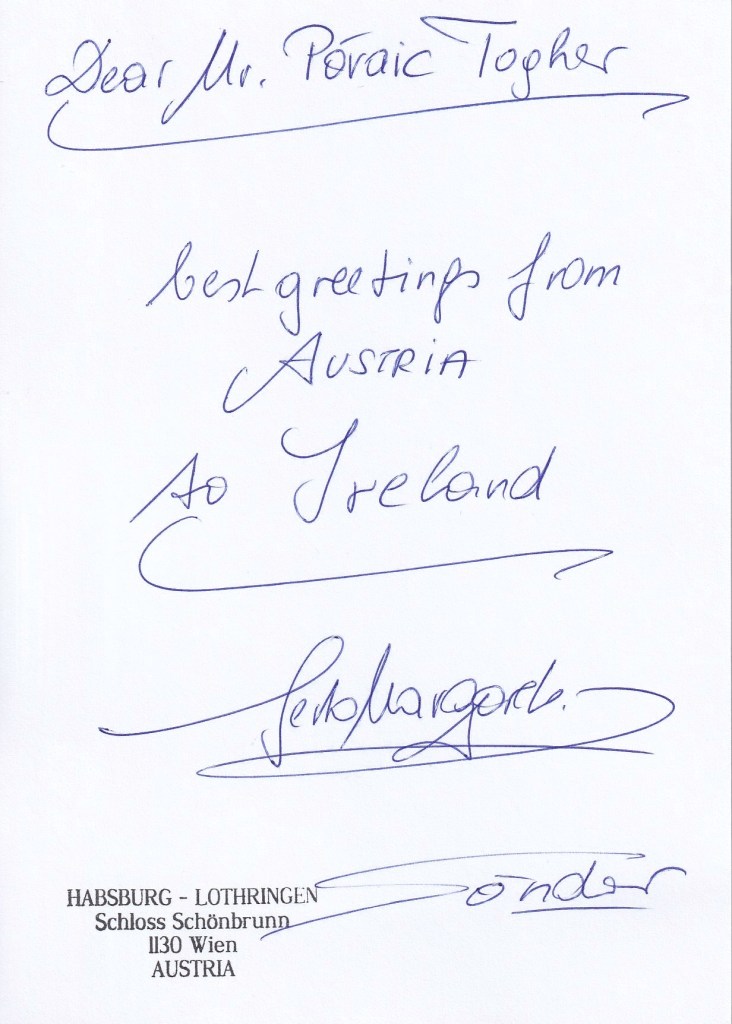 Dear Mr. Póraic Togher
best greetings from
AUSTRIA
to Ireland
Herta Margarete
Sandor
HABSBURG - LOTHRINGEN
Schloss Schönbrunn
1130 Wien
AUSTRIA